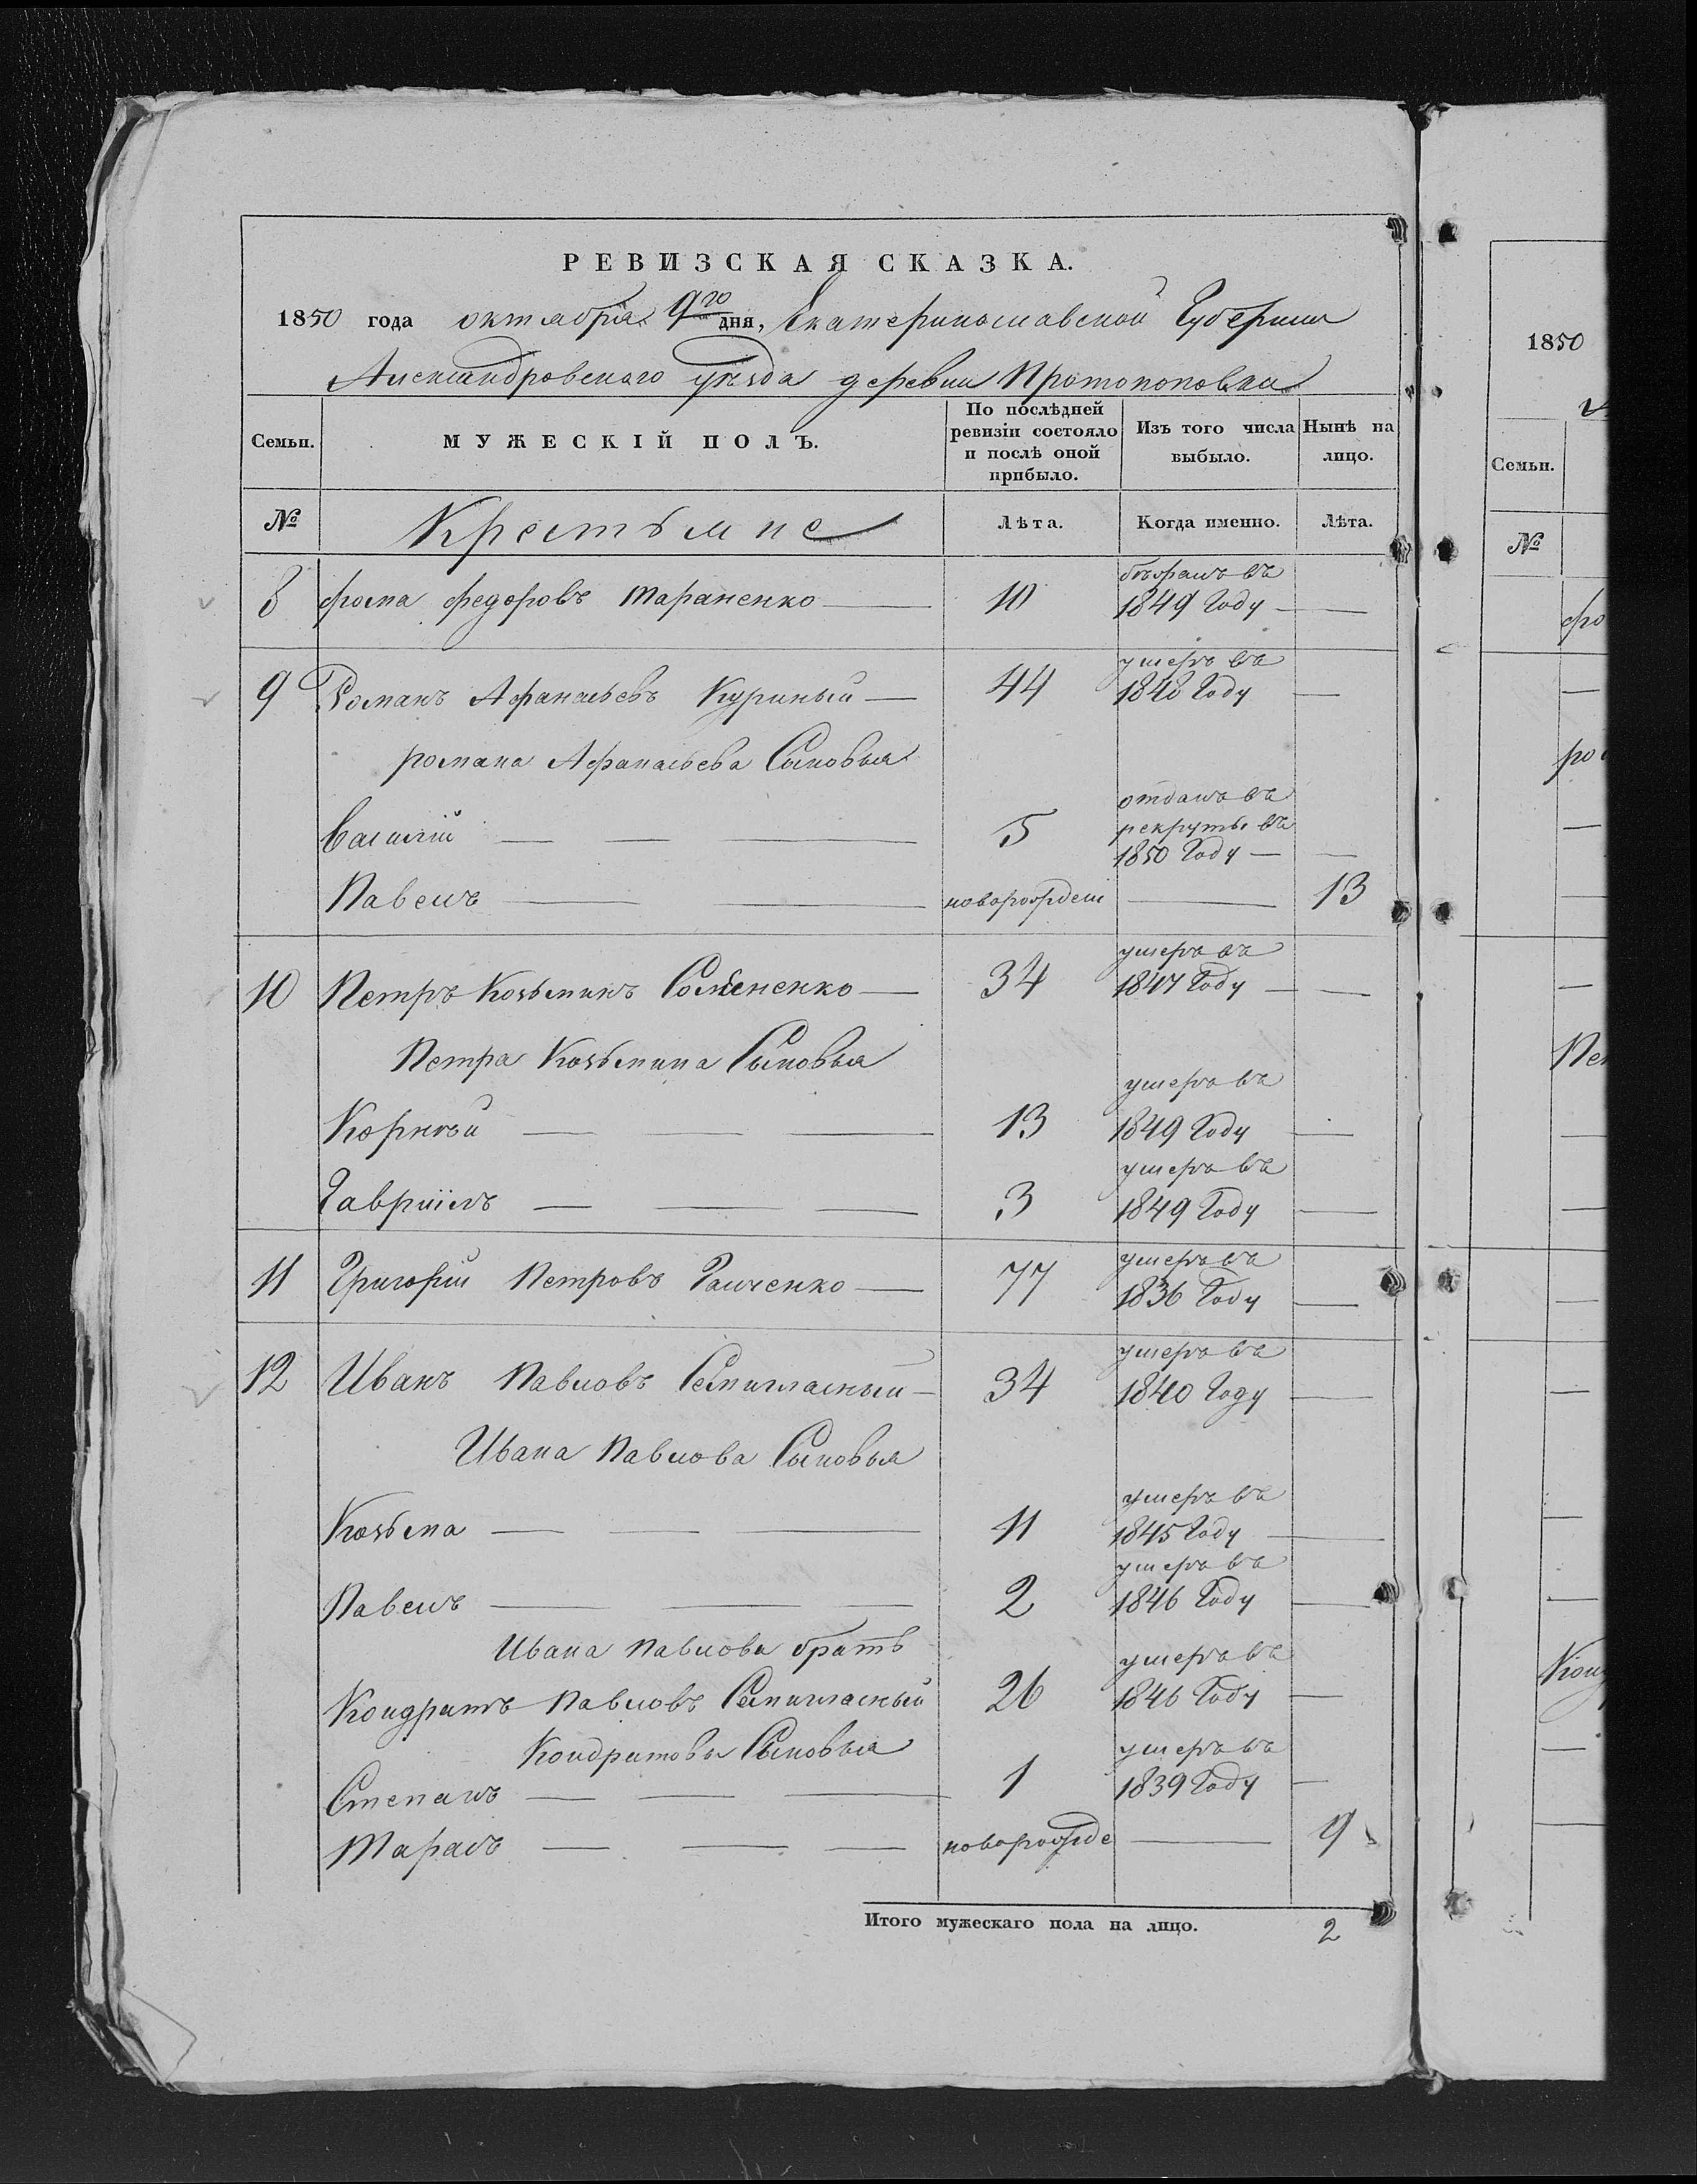 РЕВИЗСКАЯ СКАЗКА.
1850 года октября 9го дня, Екатеринославской Губернии
Александровскаго уѣзда деревни Протопоповки
Семьи. МУЖЕСКІЙ ПОЛЪ. По послѣдней ревизіи состояло и послѣ оной прибыло. Изъ того числа выбыло. Нынѣ на лицо.
№ Крестьяне Лѣта. Когда именно. Лѣта.
8 Фома Федоровъ Тараненко — 10 въ 1849 Году —
9 Романъ Афанасьевъ Куриный — 44 умеръ въ 1840 Году —
Романа Афанасьева Сыновья
Василій — 5 отданъ въ рекруты въ 1850 Году —
Павелъ — новорожден — 13
10 Петръ Козьминъ — 34 умеръ въ 1847 Году —
Петра Козьмина Сыновья
Корнѣй — 13 умеръ въ 1849 Году —
Гавріилъ — 3 умеръ въ 1849 Году —
11 Григорій Петровъ — 77 умеръ въ 1836 Году —
12 Иванъ Павловъ — 34 умеръ въ 1840 Году —
Ивана Павлова Сыновья
Козьма — 11 умеръ въ 1845 Году —
Павелъ — 2 умеръ въ 1846 Году —
Ивана Павлова братъ
Кондратъ Павловъ 26 умеръ въ 1846 Году —
Кондратовы Сыновья
Степанъ — 1 умеръ въ 1839 Году —
Тарасъ — новорожде — 9
Итого мужескаго пола на лицо. 2
1850
Семьи.
№